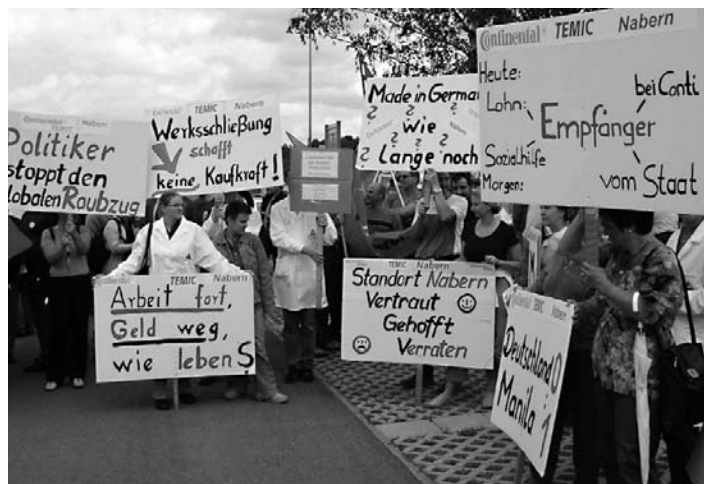 Continental TEMIC Nabern
Politiker
stoppt den
globalen Raubzug
Continental TEMIC Nabern
Werksschließung
schafft
keine Kaufkraft!
Made in German
wie
Lange noch
Continental TEMIC Nabern
Heute:
bei Conti
Lohn:
Empfänger
Sozialhilfe
Morgen:
vom Staat
TEMIC Nabern
Arbeit fort,
Geld weg,
wie leben S
TEMIC Nabern
Standort Nabern
Vertraut
Gehofft
Verraten
Continental TEMIC Nabern
Deutschland 0
Manila 1